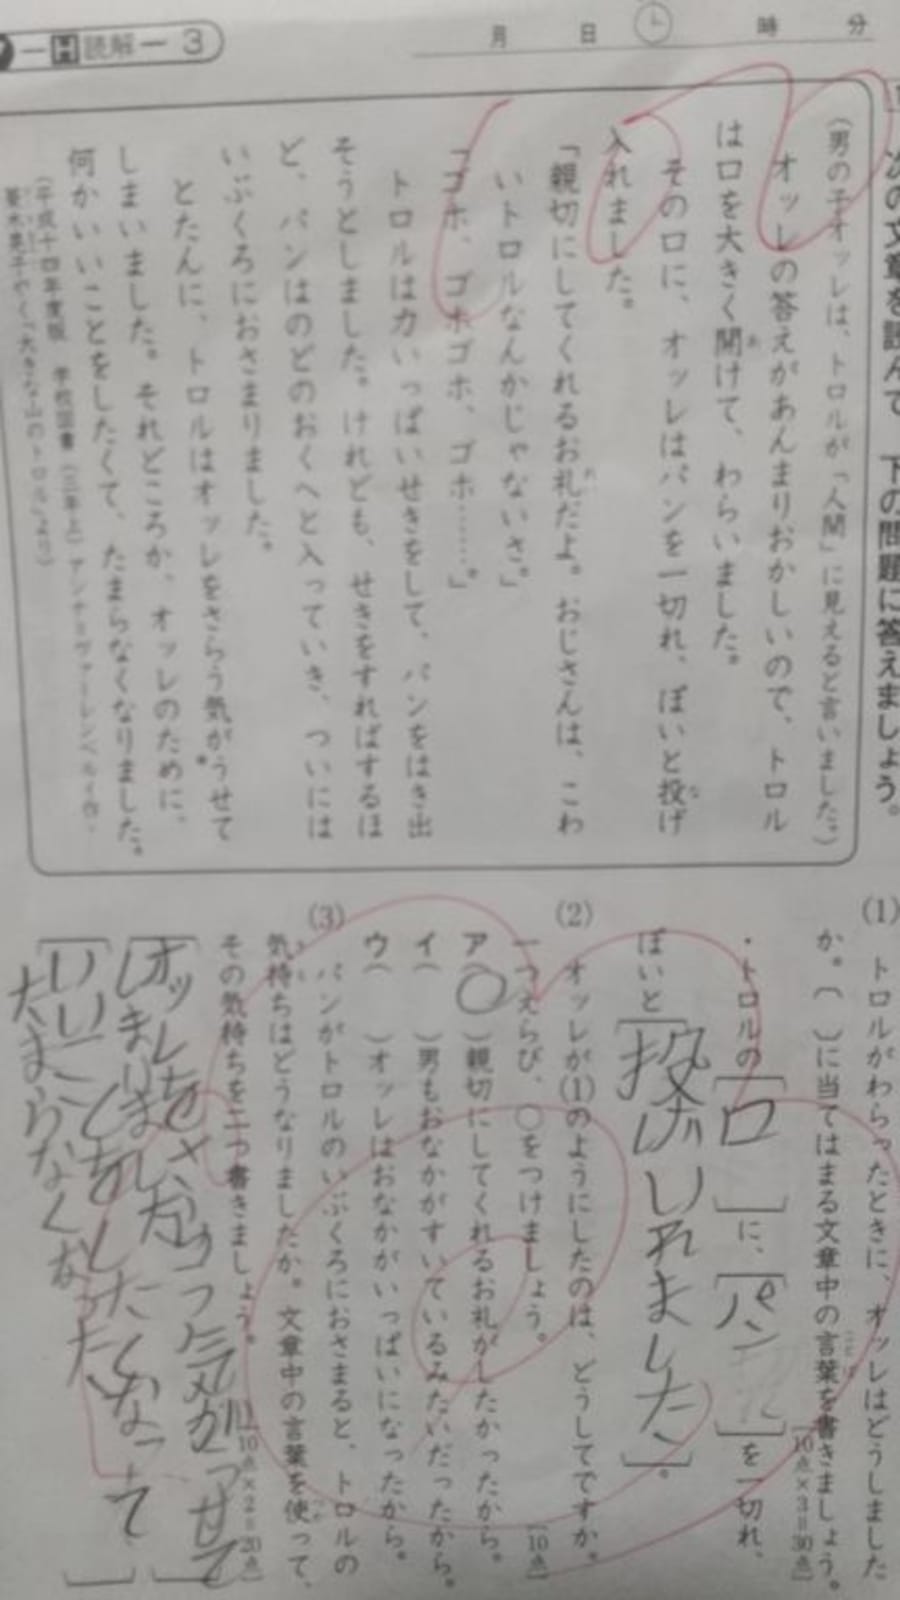 H読解ー3
月 日 時 分
次の文章を読んで、下の問題に答えましょう。
(男の子オッレは、トロルが「人間」に見えると言いました。)
オッレの答えがあんまりおかしいので、トロル
は口を大きく開けて、わらいました。
そのロに、オッレはパンを一切れ、ぽいと投げ
入れました。
「親切にしてくれるお礼だよ。おじさんは、こわ
いトロルなんかじゃないさ。」
「ゴホ、ゴホゴホ、ゴホ……。」
トロルは力いっぱいせきをして、パンをはき出
そうとしました。けれども、せきをすればするほ
ど、パンはのどのおくへと入っていき、ついには
いぶくろにおさまりました。
とたんに、トロルはオッレをさらう気がうせて
しまいました。それどころか、オッレのために、
何かいいことをしたくて、たまらなくなりました。
(平成十四年度版 学校図書(三年上)アンナ=ヴァーレンベルイ作・
菱木晃子やく「大きな山のトロル」より)
(1) トロルがわらったときに、オッレはどうしました
か。〔 〕に当てはまる文章中の言葉を書きましょう。
[10点×3=30点]
・トロルの〔口〕に、〔パン〕を一切れ、
ぽいと〔投げいれました〕。
(2) オッレが(1)のようにしたのは、どうしてですか。
一つえらび、○をつけましょう。
[10点]
ア(○)親切にしてくれるお礼がしたかったから。
イ( )男もおなかがすいているみたいだったから。
ウ( )オッレはおなかがいっぱいになったから。
(3) パンがトロルのいぶくろにおさまると、トロルの
気持ちはどうなりましたか。文章中の言葉を使って、
その気持ちを二つ書きましょう。
[10点×2=20点]
オッレをさらう気がうせて
しまいました
いいことをしたくなって
たまらなくなった